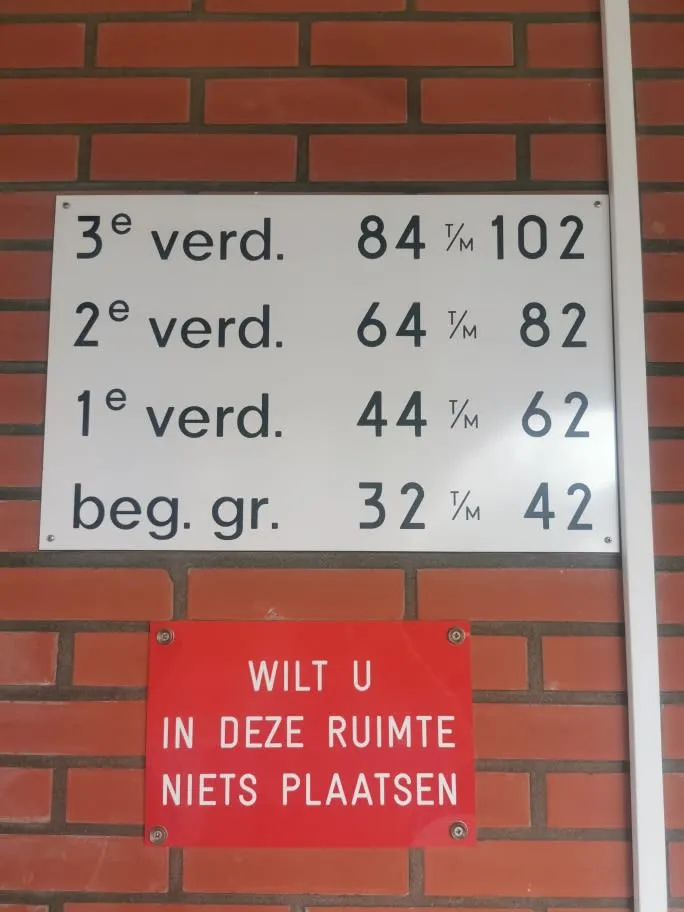 3e verd. 84 T/M 102
2e verd. 64 T/M 82
1e verd. 44 T/M 62
beg. gr. 32 T/M 42
WILT U
IN DEZE RUIMTE
NIETS PLAATSEN